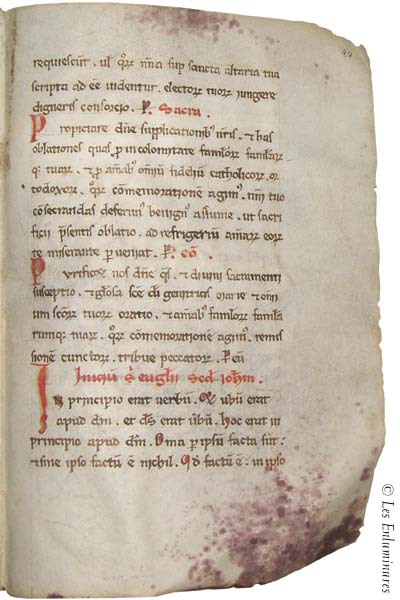 99
requiescūt. ul' quor̄ nn̄a sup̄ sancta altaria tua
scripta ad eē uidentur. electoꝝ tuoꝝ iungere
digneris consorcio. P. Sacra.
Propiciare dn̄e supplicationib; nr̄is. & has
oblationes quas p̄ incolomitate famloꝝ famlaꝝ
q; tuaꝝ. & p̄ aīab; om̄iū fidelium catholicoꝝ. or
todoxoꝝ. quoꝝ cōmemorationē agim'. t̄ni tuo
cōsecrandas deferim' benign' assume. ut sacri
ficii p̄sentis oblatio. ad refrigeriū aīaꝝ eoꝝ
te miserante p̄ueniat. P. cō.
Purificet nos dn̄e q̄s. & diuini sacramenti
susceptio. & gl̄osa scē dī genitricis marie & om̄i
um scōꝝ tuoꝝ oratio. & aīab; famloꝝ famla
rumq; tuaꝝ. quoꝝ cōmemorationē agim'. remis
sionē cunctoꝝ. tribue peccatoꝝ. P. eū
Iniciū s̄ euglii scd̄ ioh̄m.
In principio erat uerbū. & ūbū erat
apud dm̄. et ds̄ erat ūbū. hoc erat in
principio apud dm̄. Om̄a p̄ ipsū facta sūt:
& sine ipso factū ē nichil. Qd̄ factū ē: in ipso
© Les Enluminures